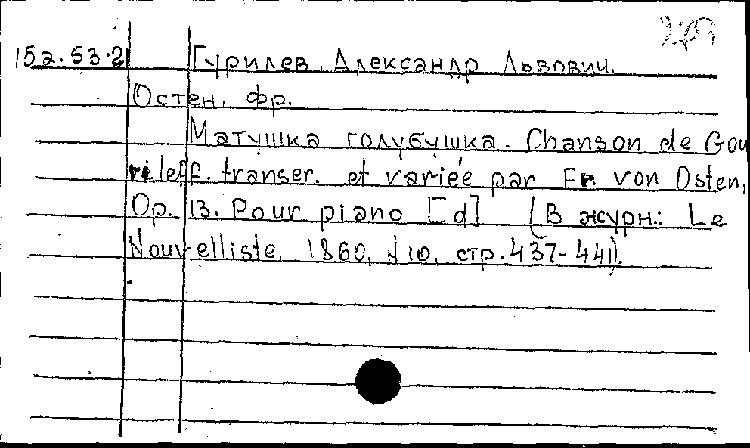 15а.53.2 Гурилев, Александр Львович.
Остен, Фр.
Матушка голубушка. Chanson de Gou
rileff. transcr. et variée par Fr. von Osten,
Op. 13. Pour piano [d] (В журн.: Le
Nouvelliste, 1860, №10, стр. 437-441).